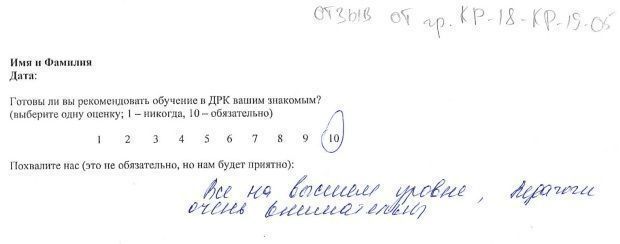 ОТЗЫВ ОТ гр. КР-18-КР-19-05
Имя и Фамилия
Дата:
Готовы ли вы рекомендовать обучение в ДРК вашим знакомым?
(выберите одну оценку; 1 – никогда, 10 – обязательно)
1 2 3 4 5 6 7 8 9 10
Похвалите нас (это не обязательно, но нам будет приятно):
Все на высшем уровне, Педагоги
очень внимательны